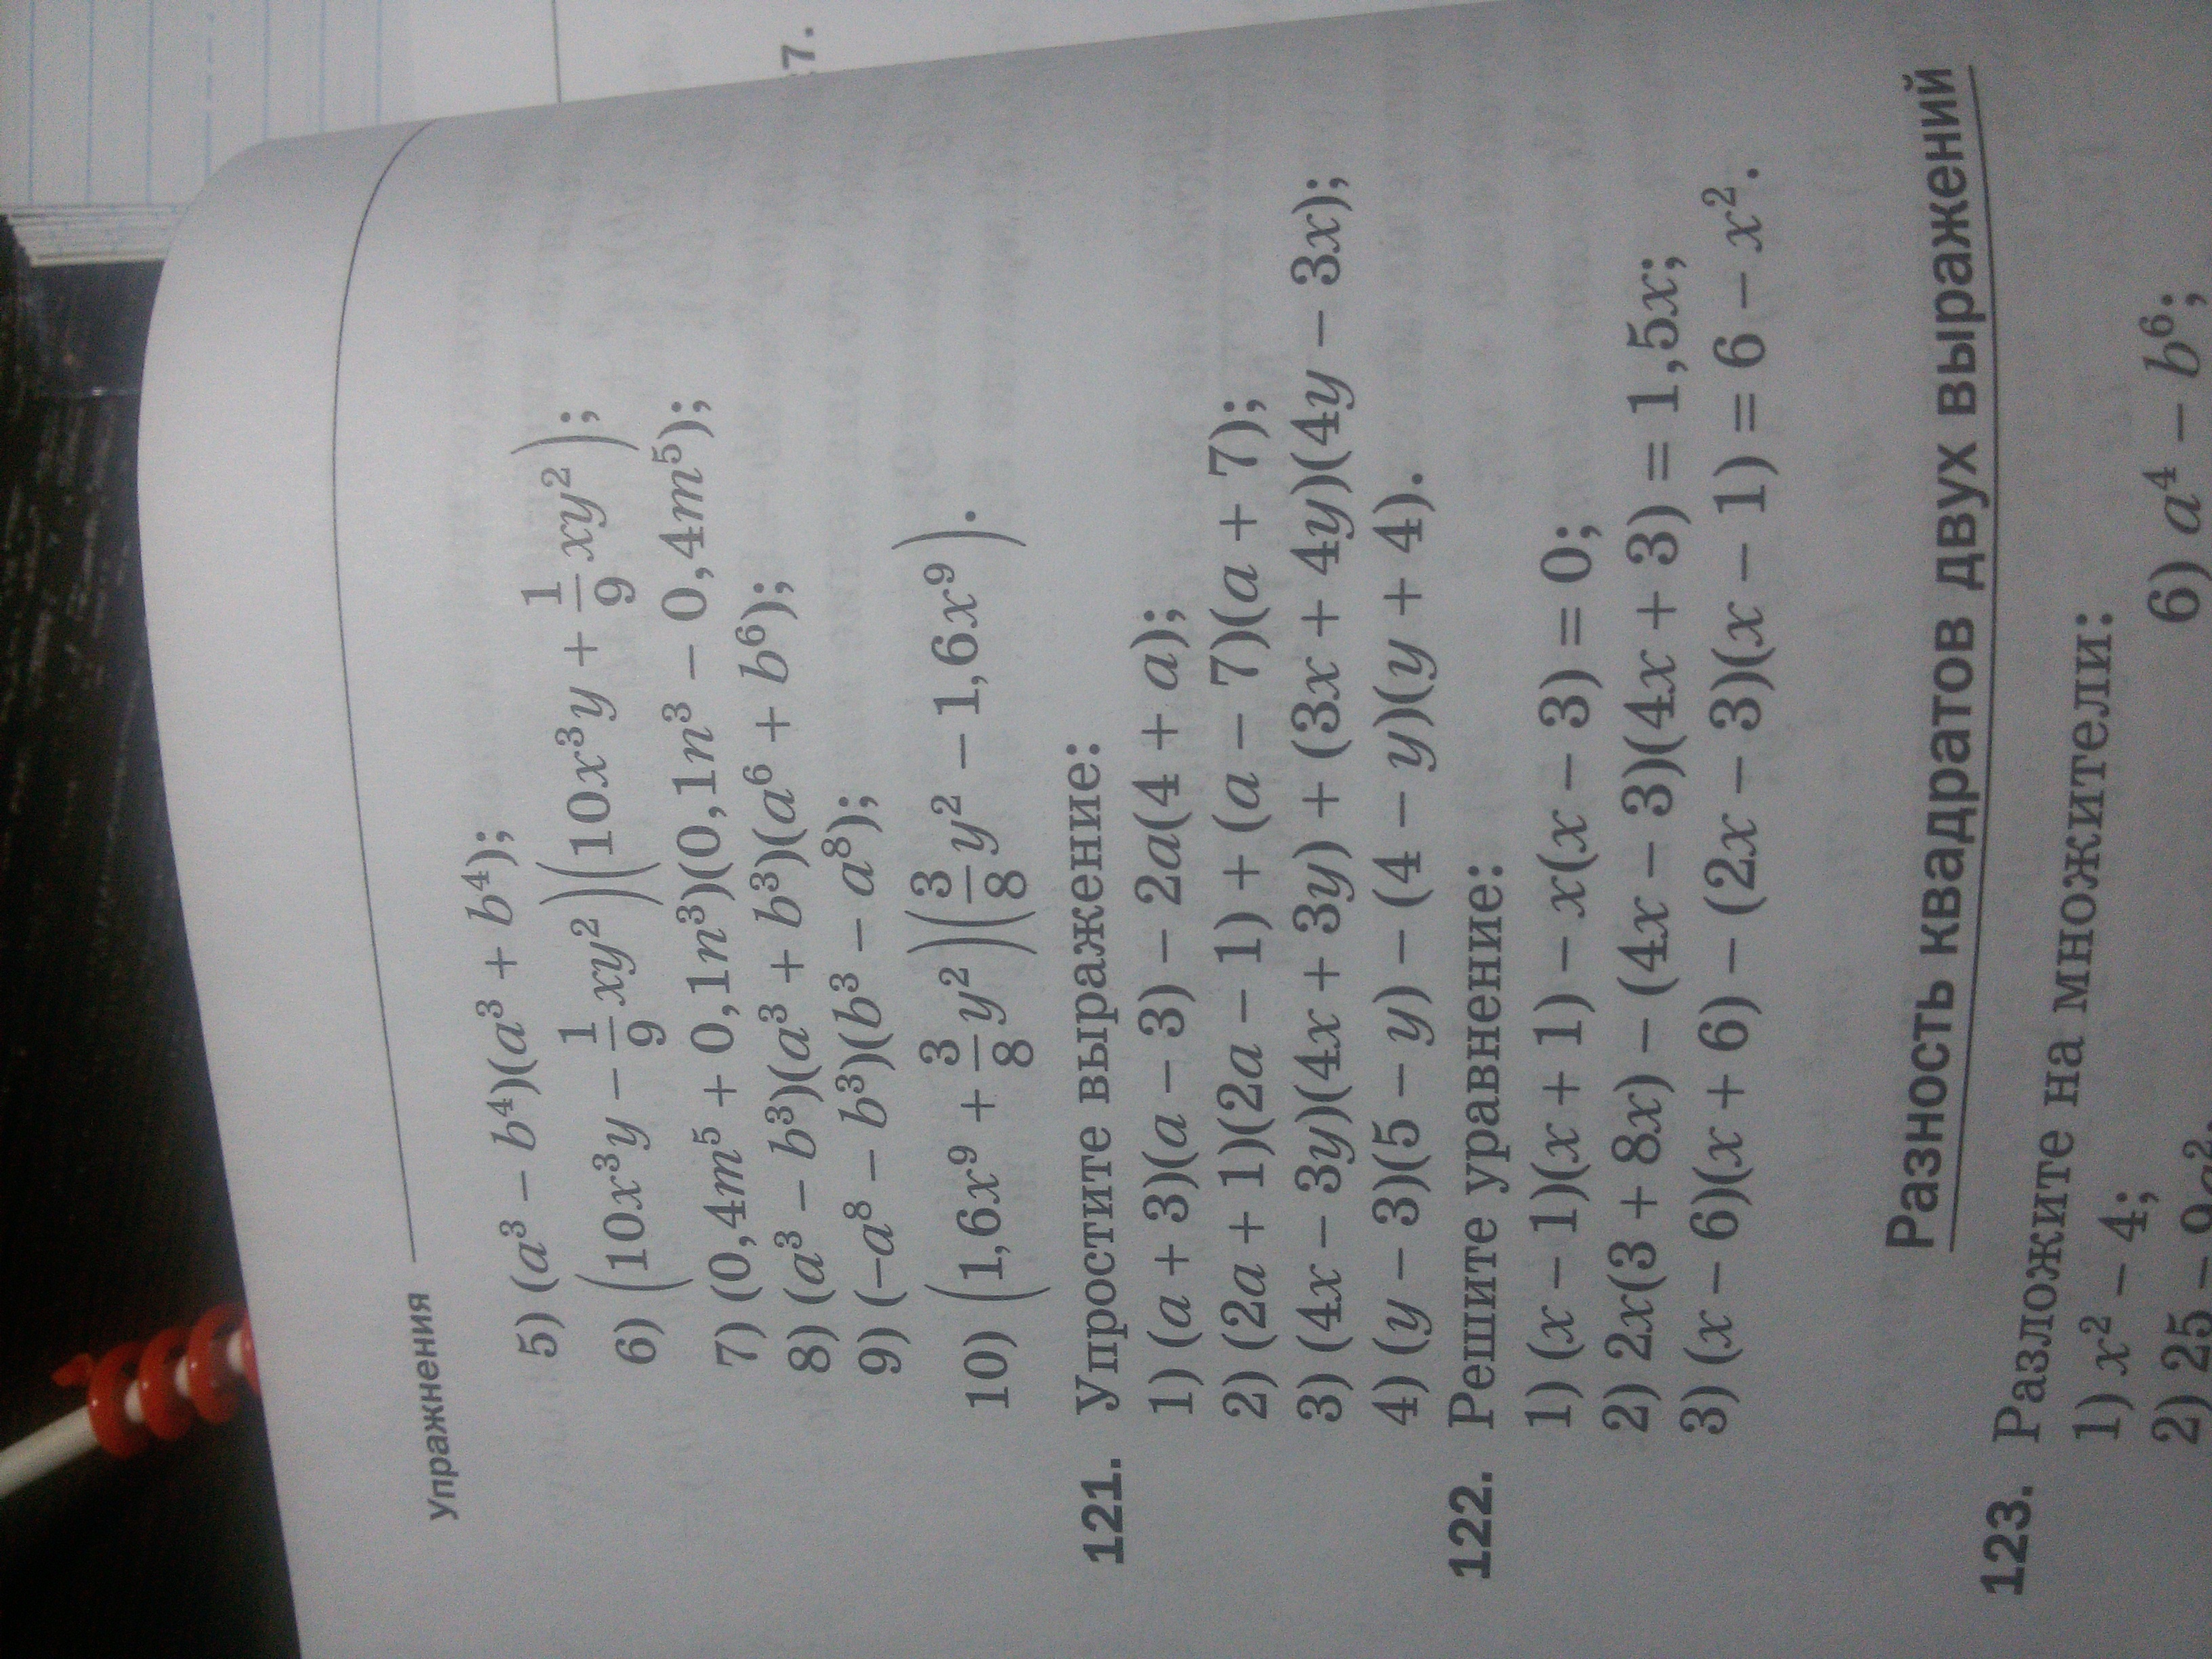 Упражнения
5) (a³ − b⁴)(a³ + b⁴);
6) (10x³y − 1/9 xy²)(10x³y + 1/9 xy²);
7) (0,4m⁵ + 0,1n³)(0,1n³ − 0,4m⁵);
8) (a³ − b³)(a³ + b³)(a⁶ + b⁶);
9) (−a⁸ − b³)(b³ − a⁸);
10) (1,6x⁹ + 3/8 y²)(3/8 y² − 1,6x⁹).
121. Упростите выражение:
1) (a + 3)(a − 3) − 2a(4 + a);
2) (2a + 1)(2a − 1) + (a − 7)(a + 7);
3) (4x − 3y)(4x + 3y) + (3x + 4y)(4y − 3x);
4) (y − 3)(5 − y) − (4 − y)(y + 4).
122. Решите уравнение:
1) (x − 1)(x + 1) − x(x − 3) = 0;
2) 2x(3 + 8x) − (4x − 3)(4x + 3) = 1,5x;
3) (x − 6)(x + 6) − (2x − 3)(x − 1) = 6 − x².
Разность квадратов двух выражений
123. Разложите на множители:
1) x² − 4; 6) a⁴ − b⁶;
2) 25 − 9a²;
7.